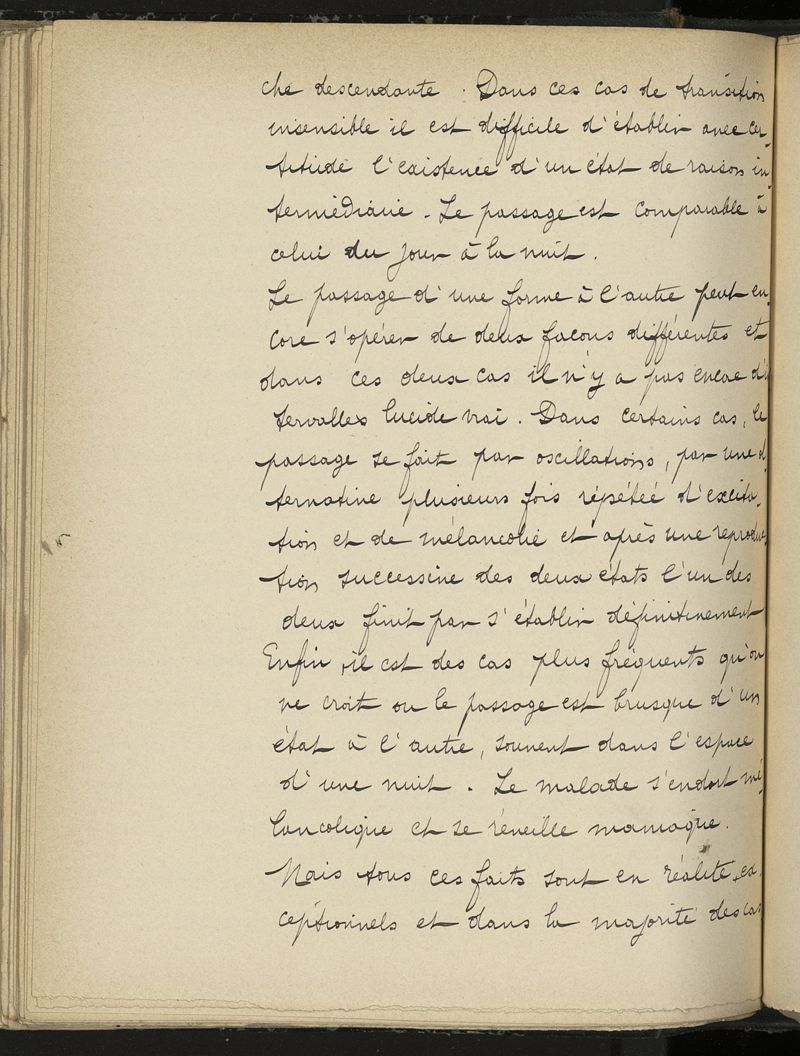 che descendante. Dans ces cas de transition
insensible il est difficile d'établir avec cer-
titude l'existence d'un état de raison in-
termédiaire. Le passage est comparable à
celui du jour à la nuit.
Le passage d'une forme à l'autre peut en-
core s'opérer de deux façons différentes et
dans ces deux cas il n'y a pas encore d'in
tervalles lucide vrai. Dans certains cas, le
passage se fait par oscillations, par une al-
ternative plusieurs fois répétée d'excita-
tion et de mélancolie et après une reproduc-
tion successive des deux états l'un des
deux finit par s'établir définitivement
Enfin, il est des cas plus fréquents qu'on
ne croit ou le passage est brusque d'un
état à l'autre, souvent dans l'espace
d'une nuit. Le malade s'endort mé-
lancolique et se réveille maniaque.
Mais tous ces faits sont en réalité ex-
ceptionnels et dans la majorité des cas